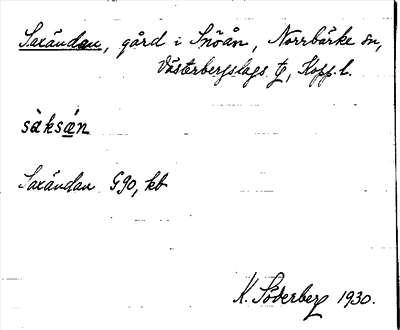 Saxändan, gård i Snöån, Norrbärke sn,
Västerbergslags tg, Kopp. l.
sàksæ̀n
Saxändan G90, kb
K. Söderberg 1930.